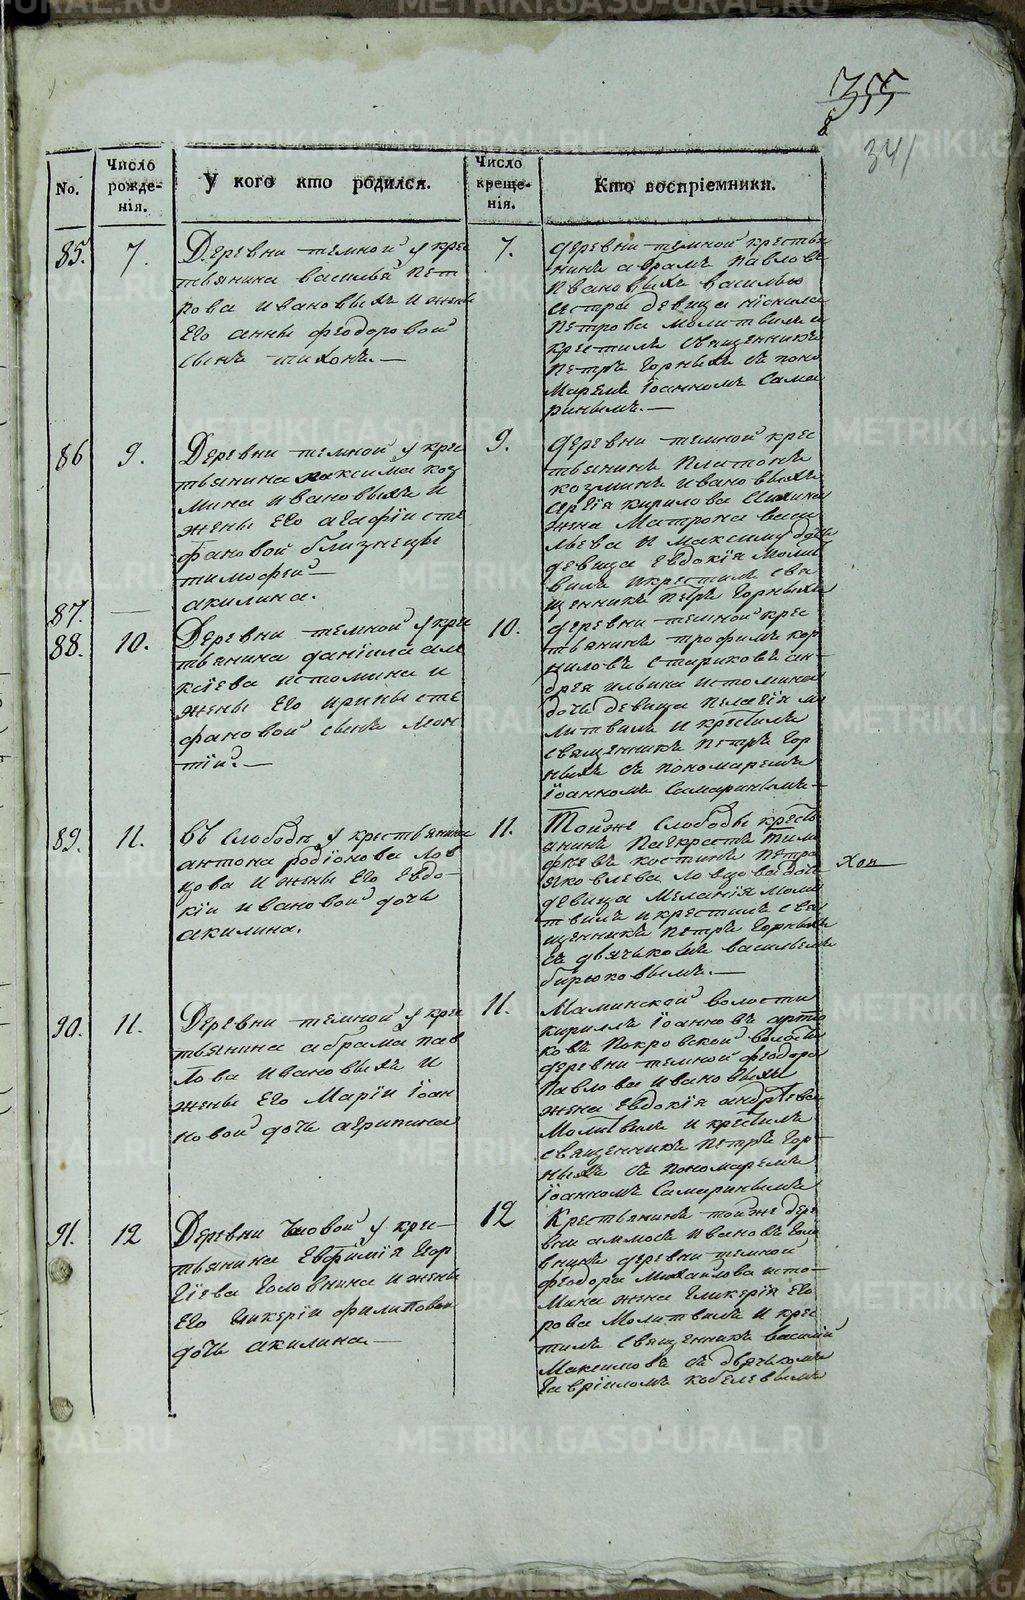 355
8
341
No.
Число рожде-нія.
У кого кто родился.
Число креще-нія.
Кто воспріемники.
85.
7.
Деревни темной у крес
тьянина василья пет
рова ивановыхъ и жены
Его анны феодоровой
сынъ тихонъ.—
7.
деревни темной крестья
нинъ абрамъ павловъ
ивановыхъ василью
сестра девица
петрова молитвилъ и
крестилъ священникъ
петръ горныхъ съ поно
маремъ іоанномъ сама
ринымъ.—
86
9.
Деревни темной у крес
тьянина максима коз
мина ивановыхъ и
жены Его агафіи сте
фановой близнецы
тимофей—
87.
—
акилина.
9.
деревни темной крес
тьянинъ платонъ
козминъ ивановыхъ
сергія кирилова
жена Матрона васи
льева и максима дочь
девица Евдокія моли
вилъ икрестилъ свя
щенникъ петръ горныхъ
88.
10.
Деревни темной у крес
тьянина даніила алек
кіева истомина и
жены Его ирины сте
фановой сынъ
тій.—
10.
деревни темной крес
тьянинъ трофимъ кор
ниловъ стариковъ ан-
дрея ильина истомина
дочь девица пелагія мо
литвилъ и крестилъ
священникъ петръ гор
ныхъ съ пономаремъ
іоанномъ самаринымъ—
89.
11.
въ слободѣ у крестьянина
антона родіонова лов
цова и жены Его Евдо-
кіи ивановой дочь
акилина.
11.
Тойже слободы кресть
анинъ панкратъ тимо
феевъ костинъ петра
яковлева ловцова дочь
девица Меланія моли
твилъ икрестилъ свя
щенникъ петръ горныхъ
съ дьячькомъ васильемъ
бирюковымъ.—
90.
11.
Деревни темной у крес
тьянина абрама пав
лова ивановыхъ и
жены Его Маріи іоан
новой дочь агрипина
11.
Маминской волости
кириллъ іоанновъ
ковъ покровской волости
деревни темной феодора
павлова ивановыхъ
жена Евдокія андреева
молитвилъ и крестилъ
священникъ петръ гор-
ныхъ съ пономаремъ
іоанномъ самаринымъ
91.
12
Деревни чюовой у крес-
тьянина Евфимія Егор
гіева головнина и жены
Его гликеріи филиповой
дочь акилина—
12
Крестьянинъ тойже дере
вни аммосъ ивановъ голо
внинъ деревни темной
феодора михайлова исто-
мина жена гликерія Его
рова молитвилъ и крес
тилъ священникъ василій
Максимовъ съ дьячькомъ
гавріиломъ кобелевымъ
METRIKI.GASO-URAL.RU